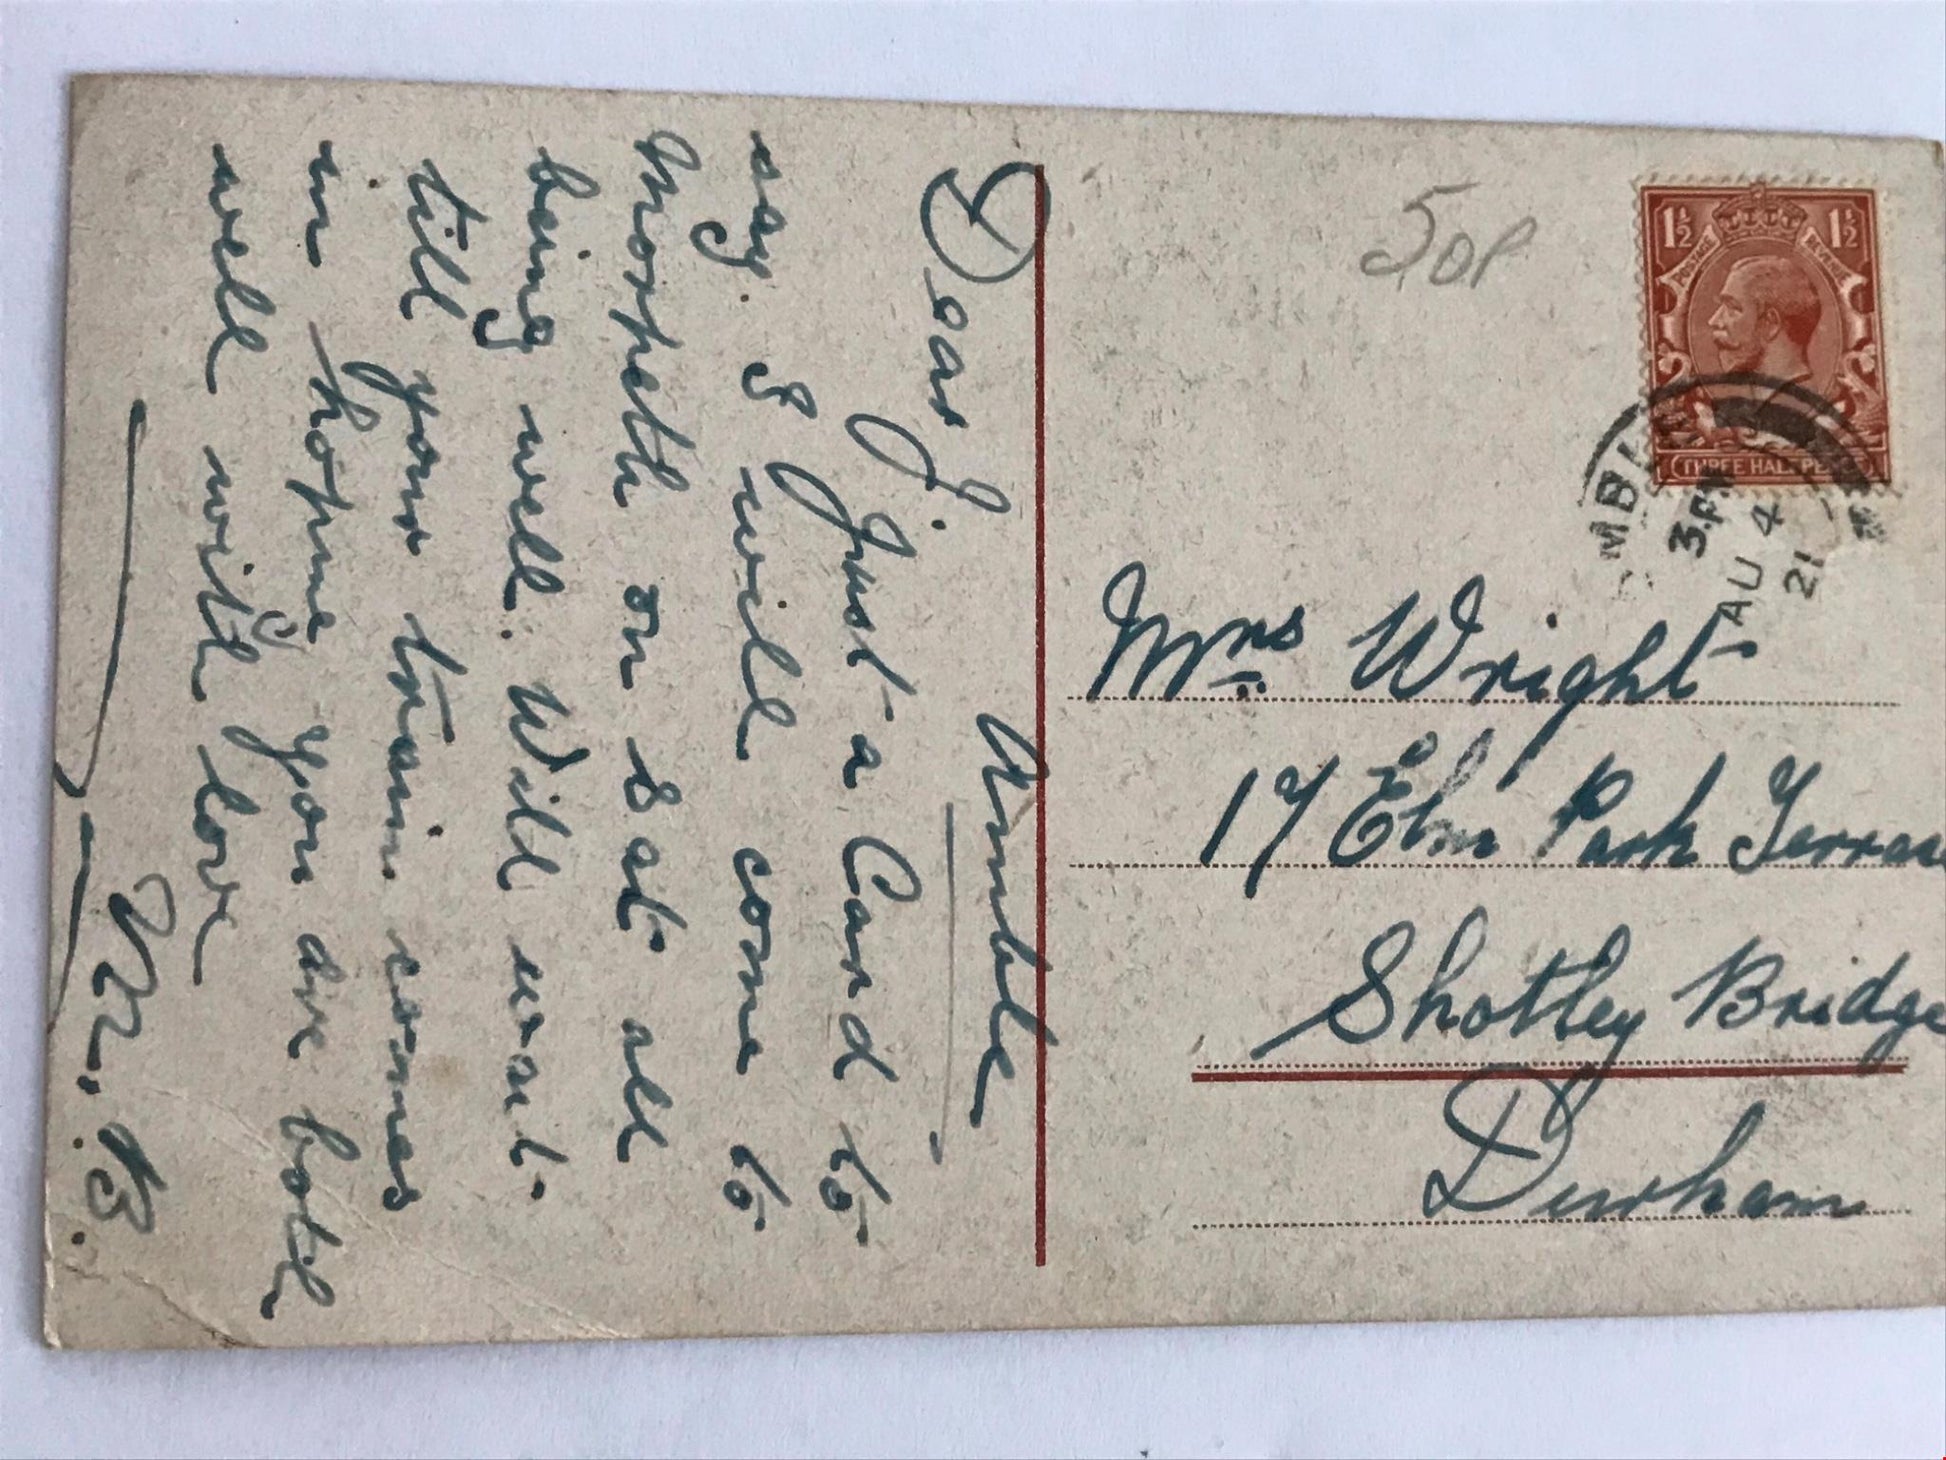 Amble
Dear J.
Just a Card to
say. I will come to
Morpeth on Sat all
being well. Will wait
till your train comes
in hoping you are both
well with love
M. B.
50P
1½ 1½
POSTAGE REVENUE
THREE HALFPENCE
3.PM
AU 4
21
Mrs Wright
17 Elm Park Terrace
Shotley Bridge
Durham